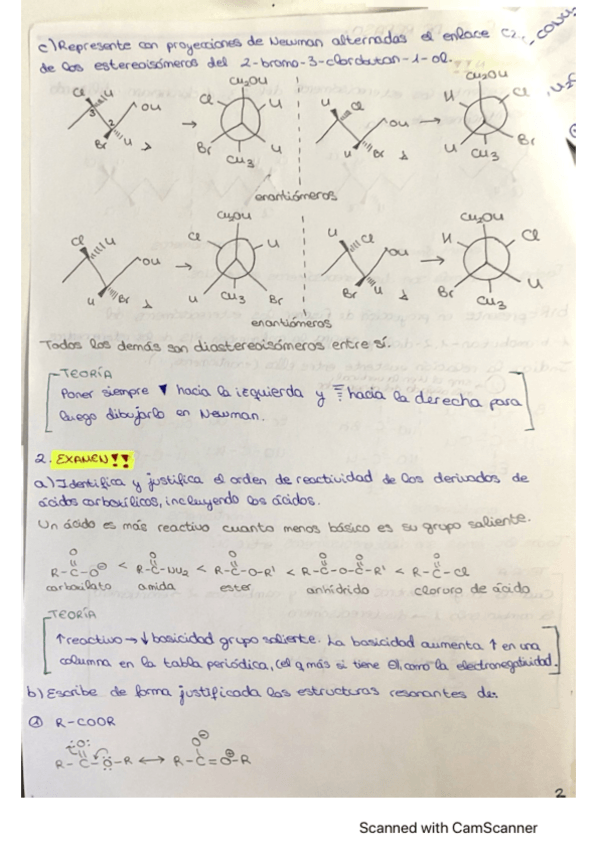 c) Represente con proyecciones de Newman alternadas el enlace C2,
de los estereoisómeros del 2-bromo-3-clorobutan-1-ol.
CH₂OH CH₂OH
Cl H OH → Cl H H Cl OH → H Cl
3 2
Br H Br H H Br H Br
CH₃ CH₃
enantiómeros
CH₂OH CH₂OH
Cl H OH → Cl H H Cl OH → H Cl
H Br H CH₃ Br Br H Br CH₃ H
enantiómeros
Todos los demás son diastereoisómeros entre sí.
TEORÍA
Poner siempre hacia la izquierda y hacia la derecha para
luego dibujarlo en Newman.
2. EXAMEN!!
a) Identifica y justifica el orden de reactividad de los derivados de
ácidos carboxílicos, incluyendo los ácidos.
Un ácido es más reactivo cuanto menos básico es su grupo saliente.
O O O O O O
R-C-O⊖ < R-C-NH₂ < R-C-O-R' < R-C-O-C-R' < R-C-Cl
carboxilato amida ester anhídrido clororo de ácido
TEORÍA
↑reactivo → ↓ basicidad grupo saliente. La basicidad aumenta ↑ en una
columna en la tabla periódica, (el q más si tiene ⊖), como la electronegatividad.
b) Escribe de forma justificada las estructuras resonantes de:
① R-COOR
:O: O⊖
R-C-O-R ↔ R-C=O⊕-R
2
Scanned with CamScanner